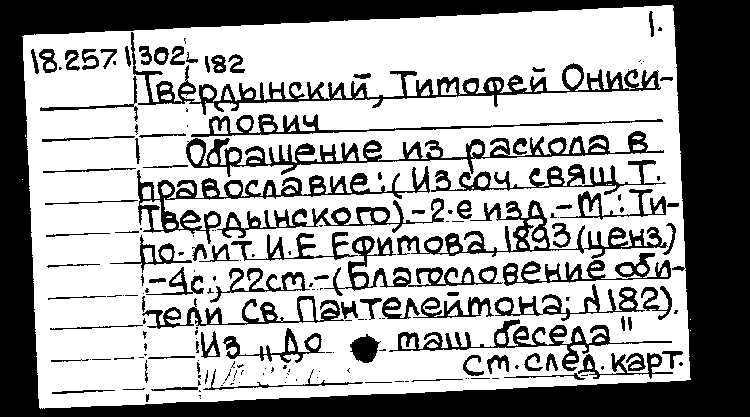 1.
18.257.1 302-182
Твердынский, Тимофей Ониси-
мович
Обращение из раскола в
православие: (Из соч. свящ. Т.
Твердынского).-2-е изд.-М.: Ти-
по-лит. И.Е. Ефимова, 1893 (ценз.)
-4с.; 22см.-(Благословение оби-
тели Св. Пантелеймона; №182).
Из "До маш. беседа"
см. след. карт.